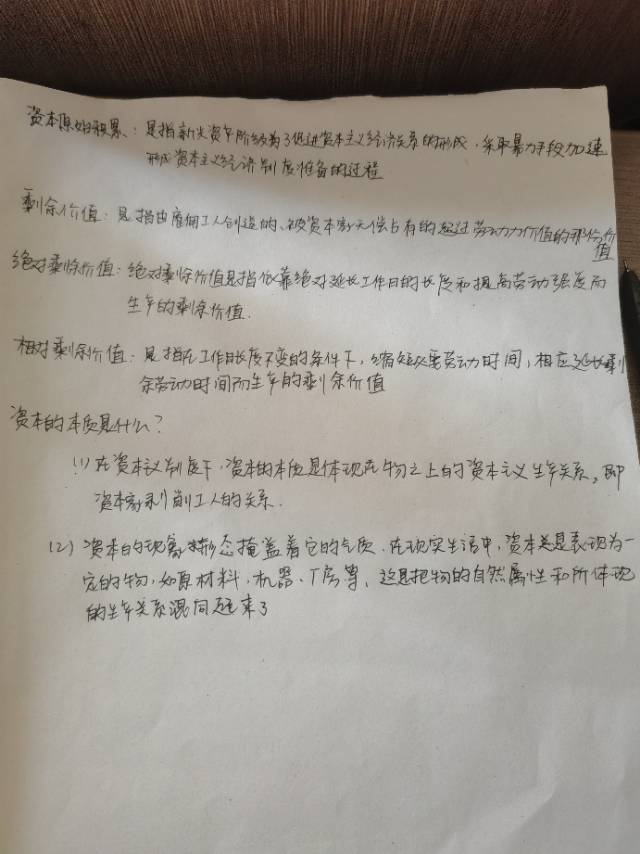 资本原始积累：是指新兴资产阶级为了促进资本主义经济关系的形成，采取暴力手段加速
形成资本主义经济制度准备的过程
剩余价值：是指由雇佣工人创造的、被资本家无偿占有的超过劳动力价值的那份价
值
绝对剩余价值：绝对剩余价值是指依靠绝对延长工作日的长度和提高劳动强度而
生产的剩余价值.
相对剩余价值：是指在工作日长度不变的条件下，缩短必要劳动时间，相应延长剩
余劳动时间而生产的剩余价值
资本的本质是什么？
(1) 在资本主义制度下，资本的本质是体现在物之上的资本主义生产关系，即
资本家剥削工人的关系.
(2) 资本的现象形态掩盖着它的本质. 在现实生活中，资本总是表现为一
定的物，如原材料、机器、厂房等，这是把物的自然属性和所体现
的生产关系混同起来了